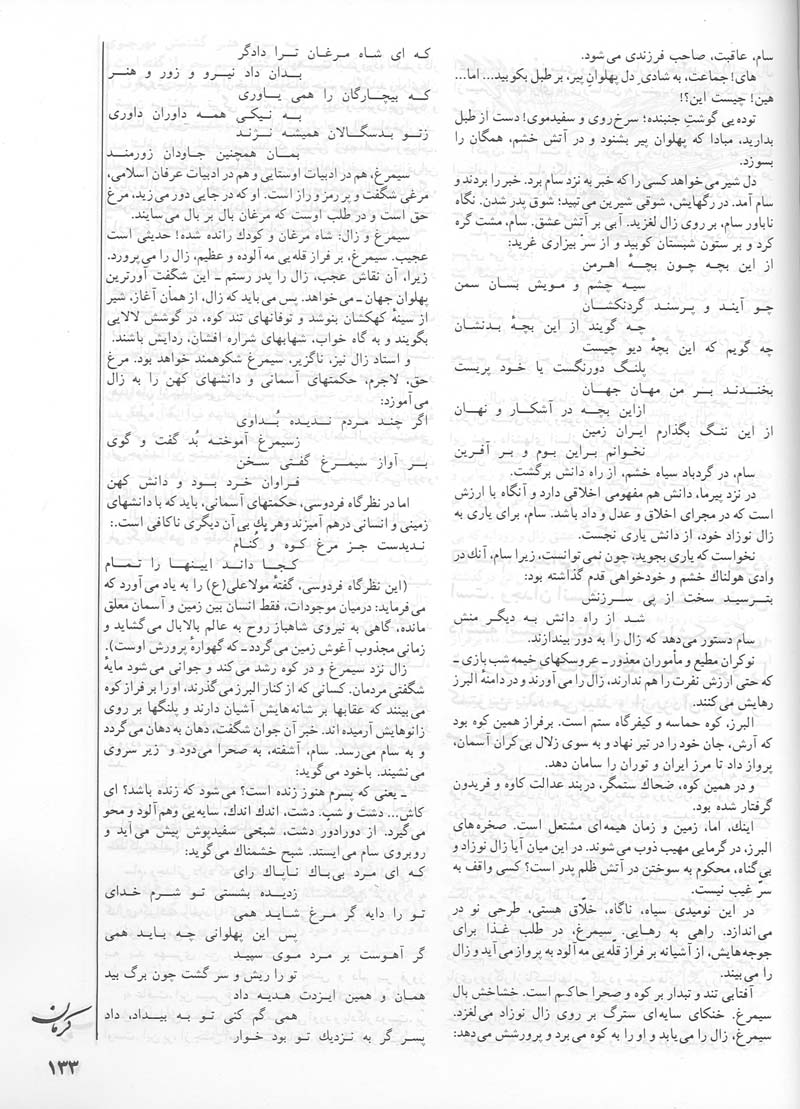 سام، عاقبت، صاحب فرزندی می‌شود.
های! جماعت، به شادیِ دل پهلوان پیر، بر طبل بکوبید... اما...
هین! چیست این؟!
توده‌یی گوشتِ جنبنده؛ سرخ‌روی و سفیدموی! دست از طبل
بدارید، مبادا که پهلوان پیر بشنود و در آتش خشم، همگان را
بسوزد.
دل شیر می‌خواهد کسی را که خبر به نزد سام برد. خبر را بردند و
سام آمد. در رگهایش، شوقی شیرین می‌تپید؛ شوق پدر شدن. نگاه
ناباور سام، بر روی زال لغزید. آبی بر آتش عشق. سام، مشت گره
کرد و بر ستون شبستان کوبید و از سرِ بیزاری غرید:
از این بچه چون بچهٔ اهرمن
سیه چشم و مویش بسان سمن
چو آیند و پرسند گردنکشان
چه گویند از این بچهٔ بدنشان
چه گویم که این بچهٔ دیو چیست
پلنگ دورنگست یا خود پریست
بخندند بر من مهان جهان
ازاین بچه در آشکار و نهان
از این ننگ بگذارم ایران زمین
نخوانم براین بوم و بر آفرین
سام، در گردباد سیاه خشم، از راه دانش برگشت.
در نزد پیرما، دانش هم مفهومی اخلاقی دارد و آنگاه با ارزش
است که در مجرای اخلاق و عدل و داد باشد. سام، برای یاری به
زال نوزاد خود، از دانش یاری نجست.
نخواست که یاری بجوید، چون نمی‌توانست، زیرا سام، آنك در
وادی هولناك خشم و خودخواهی قدم گذاشته بود:
بترسید سخت از پی سرزنش
شد از راه دانش به دیگر منش
سام دستور می‌دهد که زال را به دور بیندازند.
نوکران مطیع و مأموران معذور ـ عروسکهای خیمه شب بازی ـ
که حتی ارزش نفرت را هم ندارند، زال را می‌آورند و در دامنهٔ البرز
رهایش می‌کنند.
البرز، کوه حماسه و کیفرگاه ستم است. برفراز همین کوه بود
که آرش، جان خود را در تیز نهاد و به سوی زلال بی‌کران آسمان،
پرواز داد تا مرز ایران و توران را سامان دهد.
و در همین کوه، ضحاك ستمگر، دربند عدالت کاوه و فریدون
گرفتار شده بود.
اینك، اما، زمین و زمان هیمه‌ای مشتعل است. صخره‌های
البرز، در گرمایی مهیب ذوب می‌شوند. در این میان آیا زال نوزاد و
بی‌گناه، محکوم به سوختن در آتش ظلم پدر است؟ کسی واقف به
سرّ غیب نیست.
در این نومیدی سیاه، ناگاه، خلّاق هستی، طرحی نو در
می‌اندازد. راهی به رهایی. سیمرغ، در طلب غذا برای
جوجه‌هایش، از آشیانه بر فراز قلّه‌یی مه آلود به پرواز می‌آید و زال
را می‌بیند.
آفتابی تند و تبدار بر کوه و صحرا حاکم است. خشاخش بال
سیمرغ. خنکای سایه‌ای سترگ بر روی زال نوزاد می‌لغزد.
سیمرغ، زال را می‌یابد و او را به کوه می‌برد و پرورشش می‌دهد:
که ای شاه مرغان ترا دادگر
بدان داد نیرو و زور و هنر
که بیچارگان را همی یاوری
به نیکی همه داوران داوری
زتو بدسگالان همیشه نژند
بمان همچنین جاودان زورمند
سیمرغ، هم در ادبیات اوستایی و هم در ادبیات عرفان اسلامی،
مرغی شگفت و پر رمز و راز است. او که در جایی دور می‌زید، مرغ
حق است و در طلب اوست که مرغان بال بر بال می‌سایند.
سیمرغ و زال: شاه مرغان و کودك رانده شده! حدیثی است
عجیب. سیمرغ، بر فراز قله‌یی مه آلوده و عظیم، زال را می‌پرورد.
زیرا، آن نقاش عجب، زال را پدر رستم ـ این شگفت آورترین
پهلوان جهان ـ می‌خواهد. پس می‌باید که زال، از همان آغاز، شیر
از سینهٔ کهکشان بنوشد و توفانهای تند کوه، در گوشش لالایی
بگویند و به گاه خواب، شهابهای شراره افشان، ردایش باشند.
و استاد زال نیز، ناگزیر، سیمرغ شکوهمند خواهد بود. مرغ
حق، لاجرم، حکمتهای آسمانی و دانشهای کهن را به زال
می‌آموزد:
اگر چند مردم ندیده بُداوی
زسیمرغ آموخته بُد گفت و گوی
بر آواز سیمرغ گفتی سخن
فراوان خرد بود و دانش کهن
اما در نظرگاه فردوسی، حکمتهای آسمانی، باید که با دانشهای
زمینی و انسانی درهم آمیزند وهر یك بی‌آن دیگری ناکافی است.:
ندیدست جز مرغ کوه و کُنام
کجا داند ایینها را تمام
(این نظرگاه فردوسی، گفتهٔ مولاعلی(ع) را به یاد می‌آورد که
می‌فرماید: درمیان موجودات، فقط انسان بین زمین و آسمان معلق
مانده، گاهی به نیروی شاهباز روح به عالم بالابال می‌گشاید و
زمانی مجذوب آغوش زمین می‌گردد ـ که گهوارهٔ پرورش اوست).
زال نزد سیمرغ و در کوه رشد می‌کند و جوانی می‌شود مایهٔ
شگفتی مردمان. کسانی که از کنار البرز می‌گذرند، او را بر فراز کوه
می‌بینند که عقابها بر شانه‌هایش آشیان دارند و پلنگها بر روی
زانوهایش آرمیده اند. خبر آن جوان شگفت، دهان به دهان می‌گردد
و به سام می‌رسد. سام، آشفته، به صحرا می‌دود و زیر سروی
می‌نشیند. باخود می‌گوید:
ـ یعنی که پسرم هنوز زنده است؟ می‌شود که زنده باشد؟ ای
کاش... دشت و شب. دشت، اندك اندك، سایه‌یی وهم‌آلود و محو
می‌گیرد. از دورادور دشت، شبحی سفیدپوش پیش می‌آید و
روبروی سام می‌ایستد. شبح خشمناك می‌گوید:
که ای مرد بی‌باك ناپاك رای
زدیده بشستی تو شرم خدای
تو را دایه گر مرغ شاید همی
پس این پهلوانی چه باید همی
گر آهوست بر مرد موی سپید
تو را ریش و سر گشت چون برگ بید
همان و همین ایزدت هدیه داد
همی گم کنی تو به بیداد، داد
پسر گر به نزدیك تو بود خوار
کرمان
۱۳۳